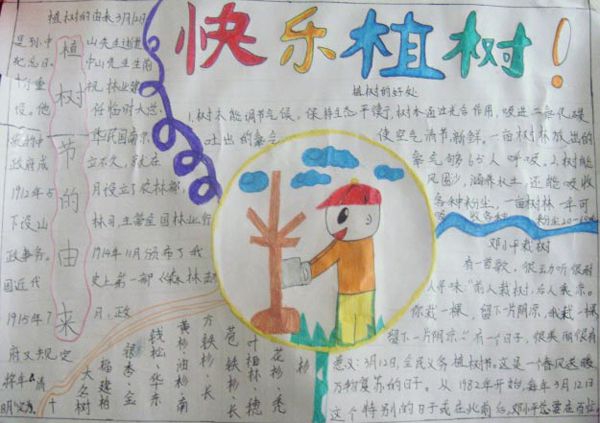 快乐植树！
植树节的由来
植树的由来3月12日
是孙中山先生逝世
纪念日。中山先生生前
十分重视林业建
设。他任临时大总
统的中华民国南京
政府成立不久，就在
1912年5月设立了农林部，
下设山林司，主管全国林业行
政事务。1914年11月颁布了我
国近代史上第一部《森林法》
1915年7月，政
府又规定
将每年清
明
植树的好处
1.树木能调节气候，保持生态平衡，树木通过光合作用，吸进二氧化碳
吐出的氧气使空气清新鲜。一亩树林放出的
氧气够65人呼吸。2.树能
风固沙，涵养水土，还能吸收
各种粉尘，一亩树林一年可
各种粉尘20-
邓小平栽树
有一首歌，很
寻味：“前人栽树，后人乘凉。
你栽一棵，留下一片阴凉，我栽一棵
留下一片阴凉。”有一个日子，很美丽很有
意义：3月12日，全民义务植树节。这是一个春风送暖
万物复苏的日子。从1982年开始，每年3月12日
这个特别的日子
杉
花杉、秃
叶桤林、德
苞铁杉、长
方铁杉、长
黄杉、油杉、南
钱松、华东
银杏、金
福建柏
大名树
十